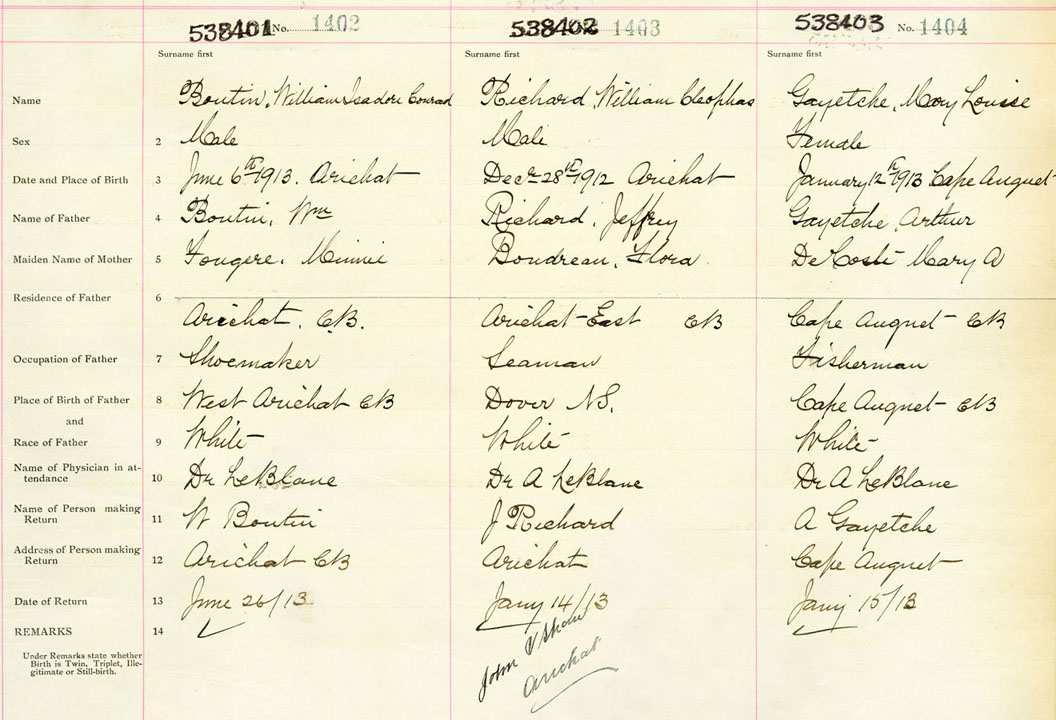 538401 No. 1402 538402 1403 538403 No. 1404
Surname first Surname first Surname first
Name Boutin, William Isadore Conrad Richard, William Cleophas Gayetche, Mary Louise
Sex 2 Male Male Female
Date and Place of Birth 3 June 6th 1913. Arichat Decr 28th 1912 Arichat January 12th 1913 Cape Auguet
Name of Father 4 Boutin, Wm Richard, Jeffrey Gayetche, Arthur
Maiden Name of Mother 5 Fougere, Minnie Boudreau, Flora De Coste Mary A
Residence of Father 6
Arichat, C.B. Arichat-East CB Cape Auguet CB
Occupation of Father 7 Shoemaker Seaman Fisherman
Place of Birth of Father 8 West Arichat CB Dover N.S. Cape Auguet CB
and
Race of Father 9 White White White
Name of Physician in at-
tendance 10 Dr LeBlanc Dr A LeBlanc Dr A LeBlanc
Name of Person making
Return 11 W Boutin J Richard A Gayetche
Address of Person making
Return 12 Arichat CB Arichat Cape Auguet
Date of Return 13 June 26/13 Jany 14/13 Jany 15/13
REMARKS 14
Under Remarks state whether
Birth is Twin, Triplet, Ille-
gitimate or Still-birth.
John V Shaw
Arichat